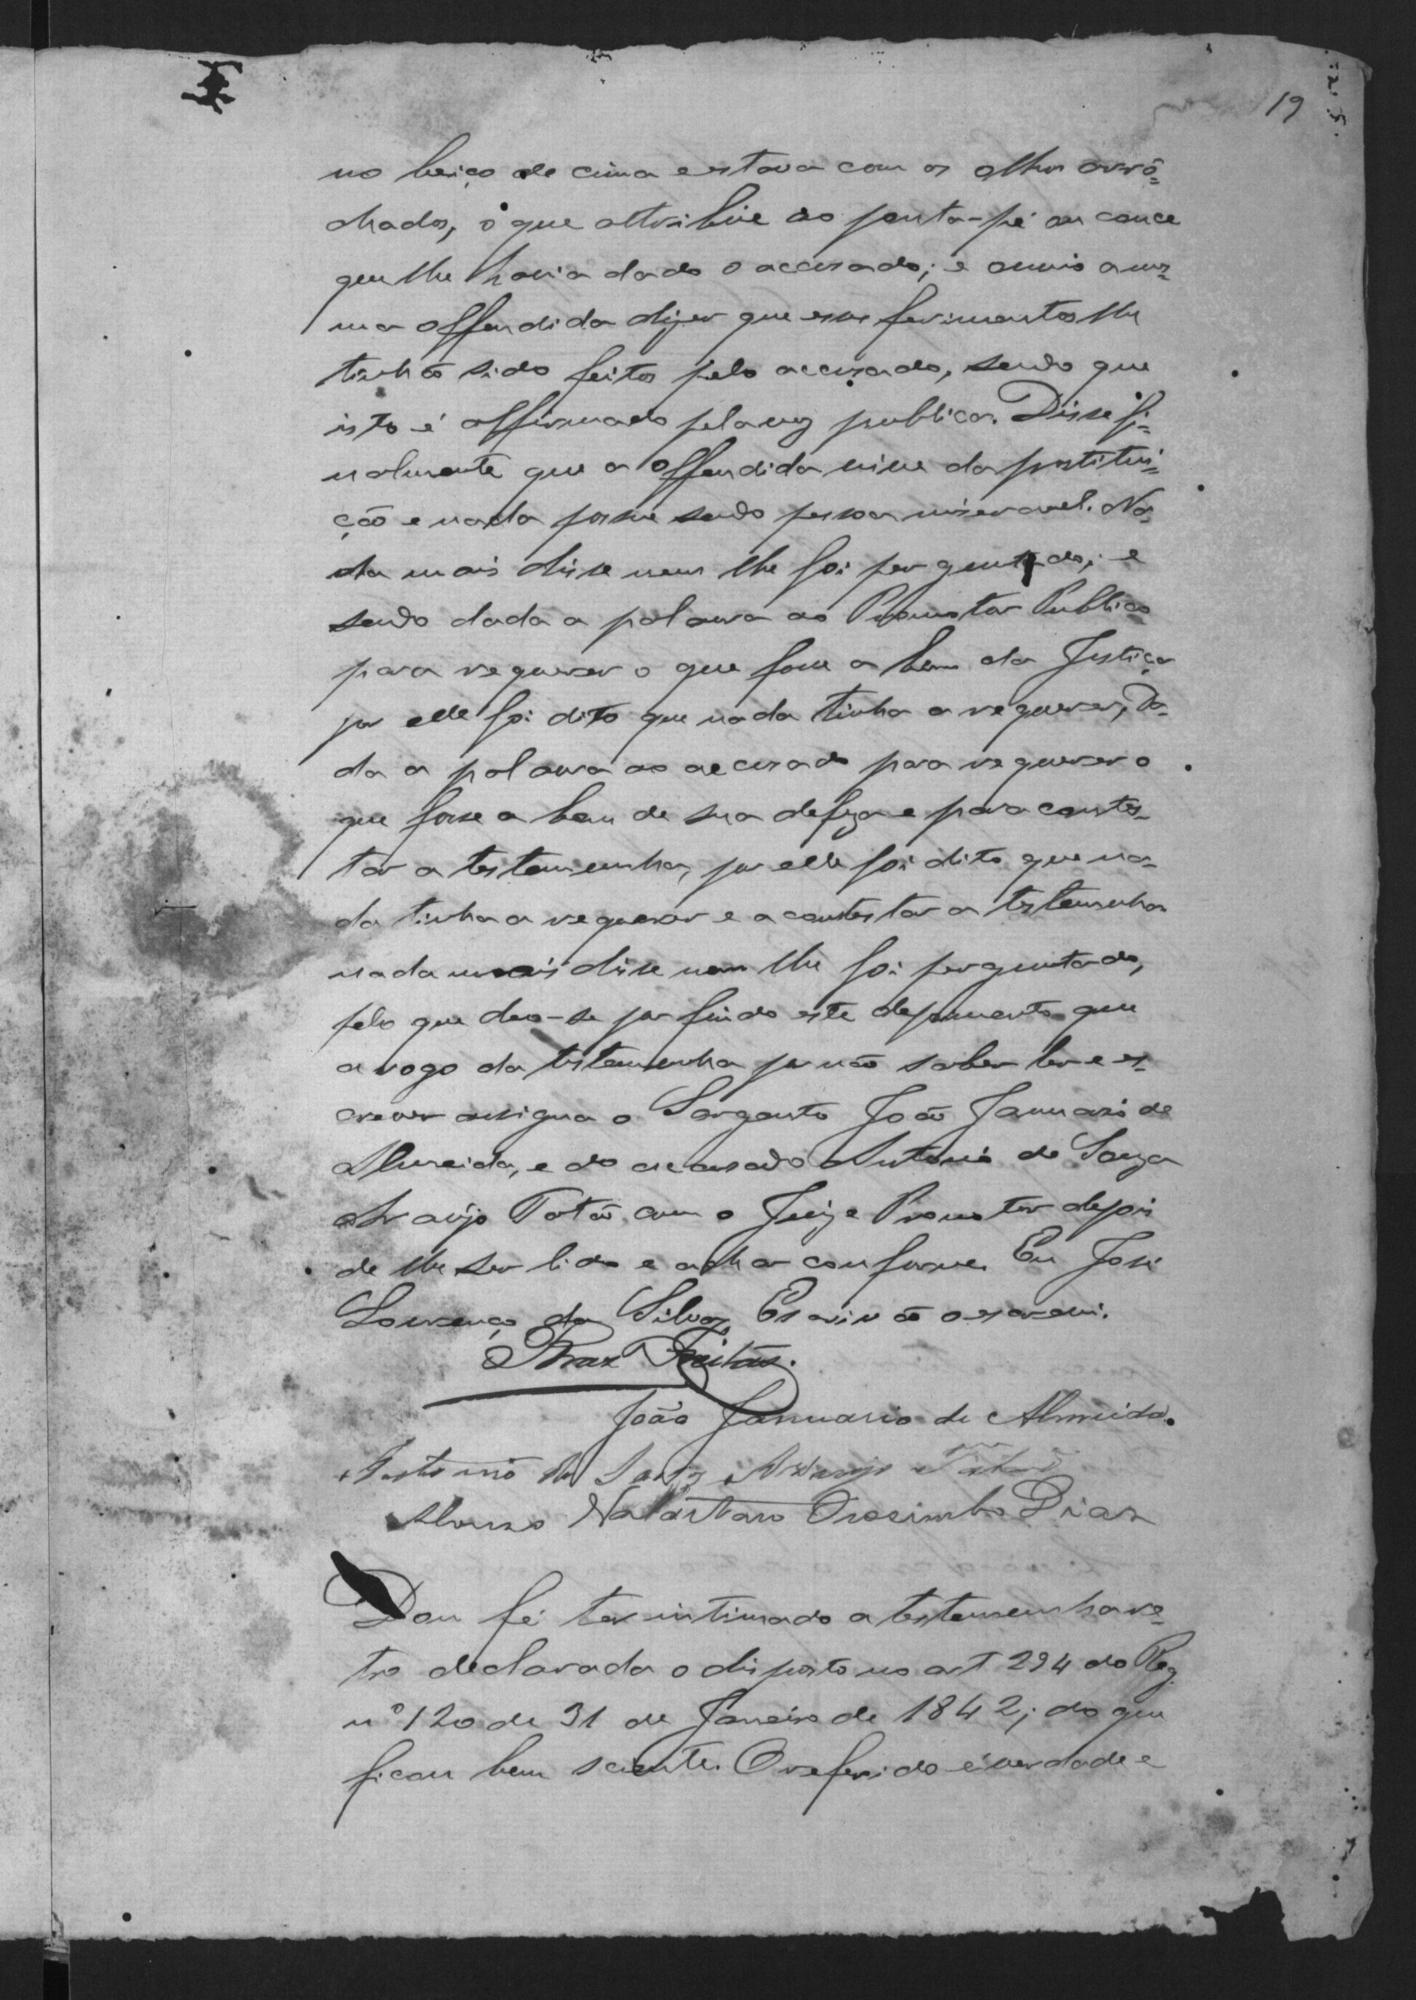 19
no beiço de cima e estava com os olhos arrô-
chados, o que attribue ao ponta-pé ou couce
que lhe havia dado o accusado; e ouvio a mes-
ma offendida dizer que esses ferimentos lhe
tinhão sido feitos pelo accusado, sendo que
isto é affirmado pela voz publica. Disse fi-
nalmente que a offendida vive da prostitui-
ção e nada possue sendo pessoa miseravel. Na-
da mais disse nem lhe foi perguntado; e
sendo dada a palavra ao Promotor Publico
para requerer o que fosse a bem da Justiça
por elle foi dito que nada tinha a requerer, Da-
da a palavra ao accusado para requerer o
que fosse a bem de sua defeza e para contes-
tar a testemunha, por elle foi dito que na-
da tinha a requerer e a contestar a testemunha
nada mais disse nem lhe foi perguntado,
pelo que deo-se por findo este depoimento que
a rogo da testemunha por não saber ler e es-
crever assigna o Sargento João Januario de
Almeida, e do accusado Antonio de Souza
Araújo Totão com o Juiz e Promotor depois
de lhe ser lido e achar conforme. Eu José
Lourenço da Silva, Escrivão o escrevi.
Braz Freitas.
João Januario de Almeida.
Antonio de Souza Araujo Totão
Alonso Orosimbo Dias
Dou fé ter intimado a testemunha re-
tro declarada o disposto no art 294 do Reg.
nº 120 de 31 de Janeiro de 1842; do que
ficou bem sciente. O referido é verdade e